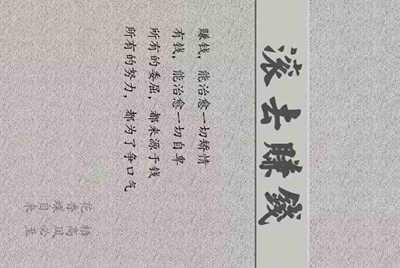 滚去賺錢
赚钱，能治愈一切矫情
有钱，能治愈一切自卑
所有的委屈，都来源于钱
所有的努力，都为了争口气